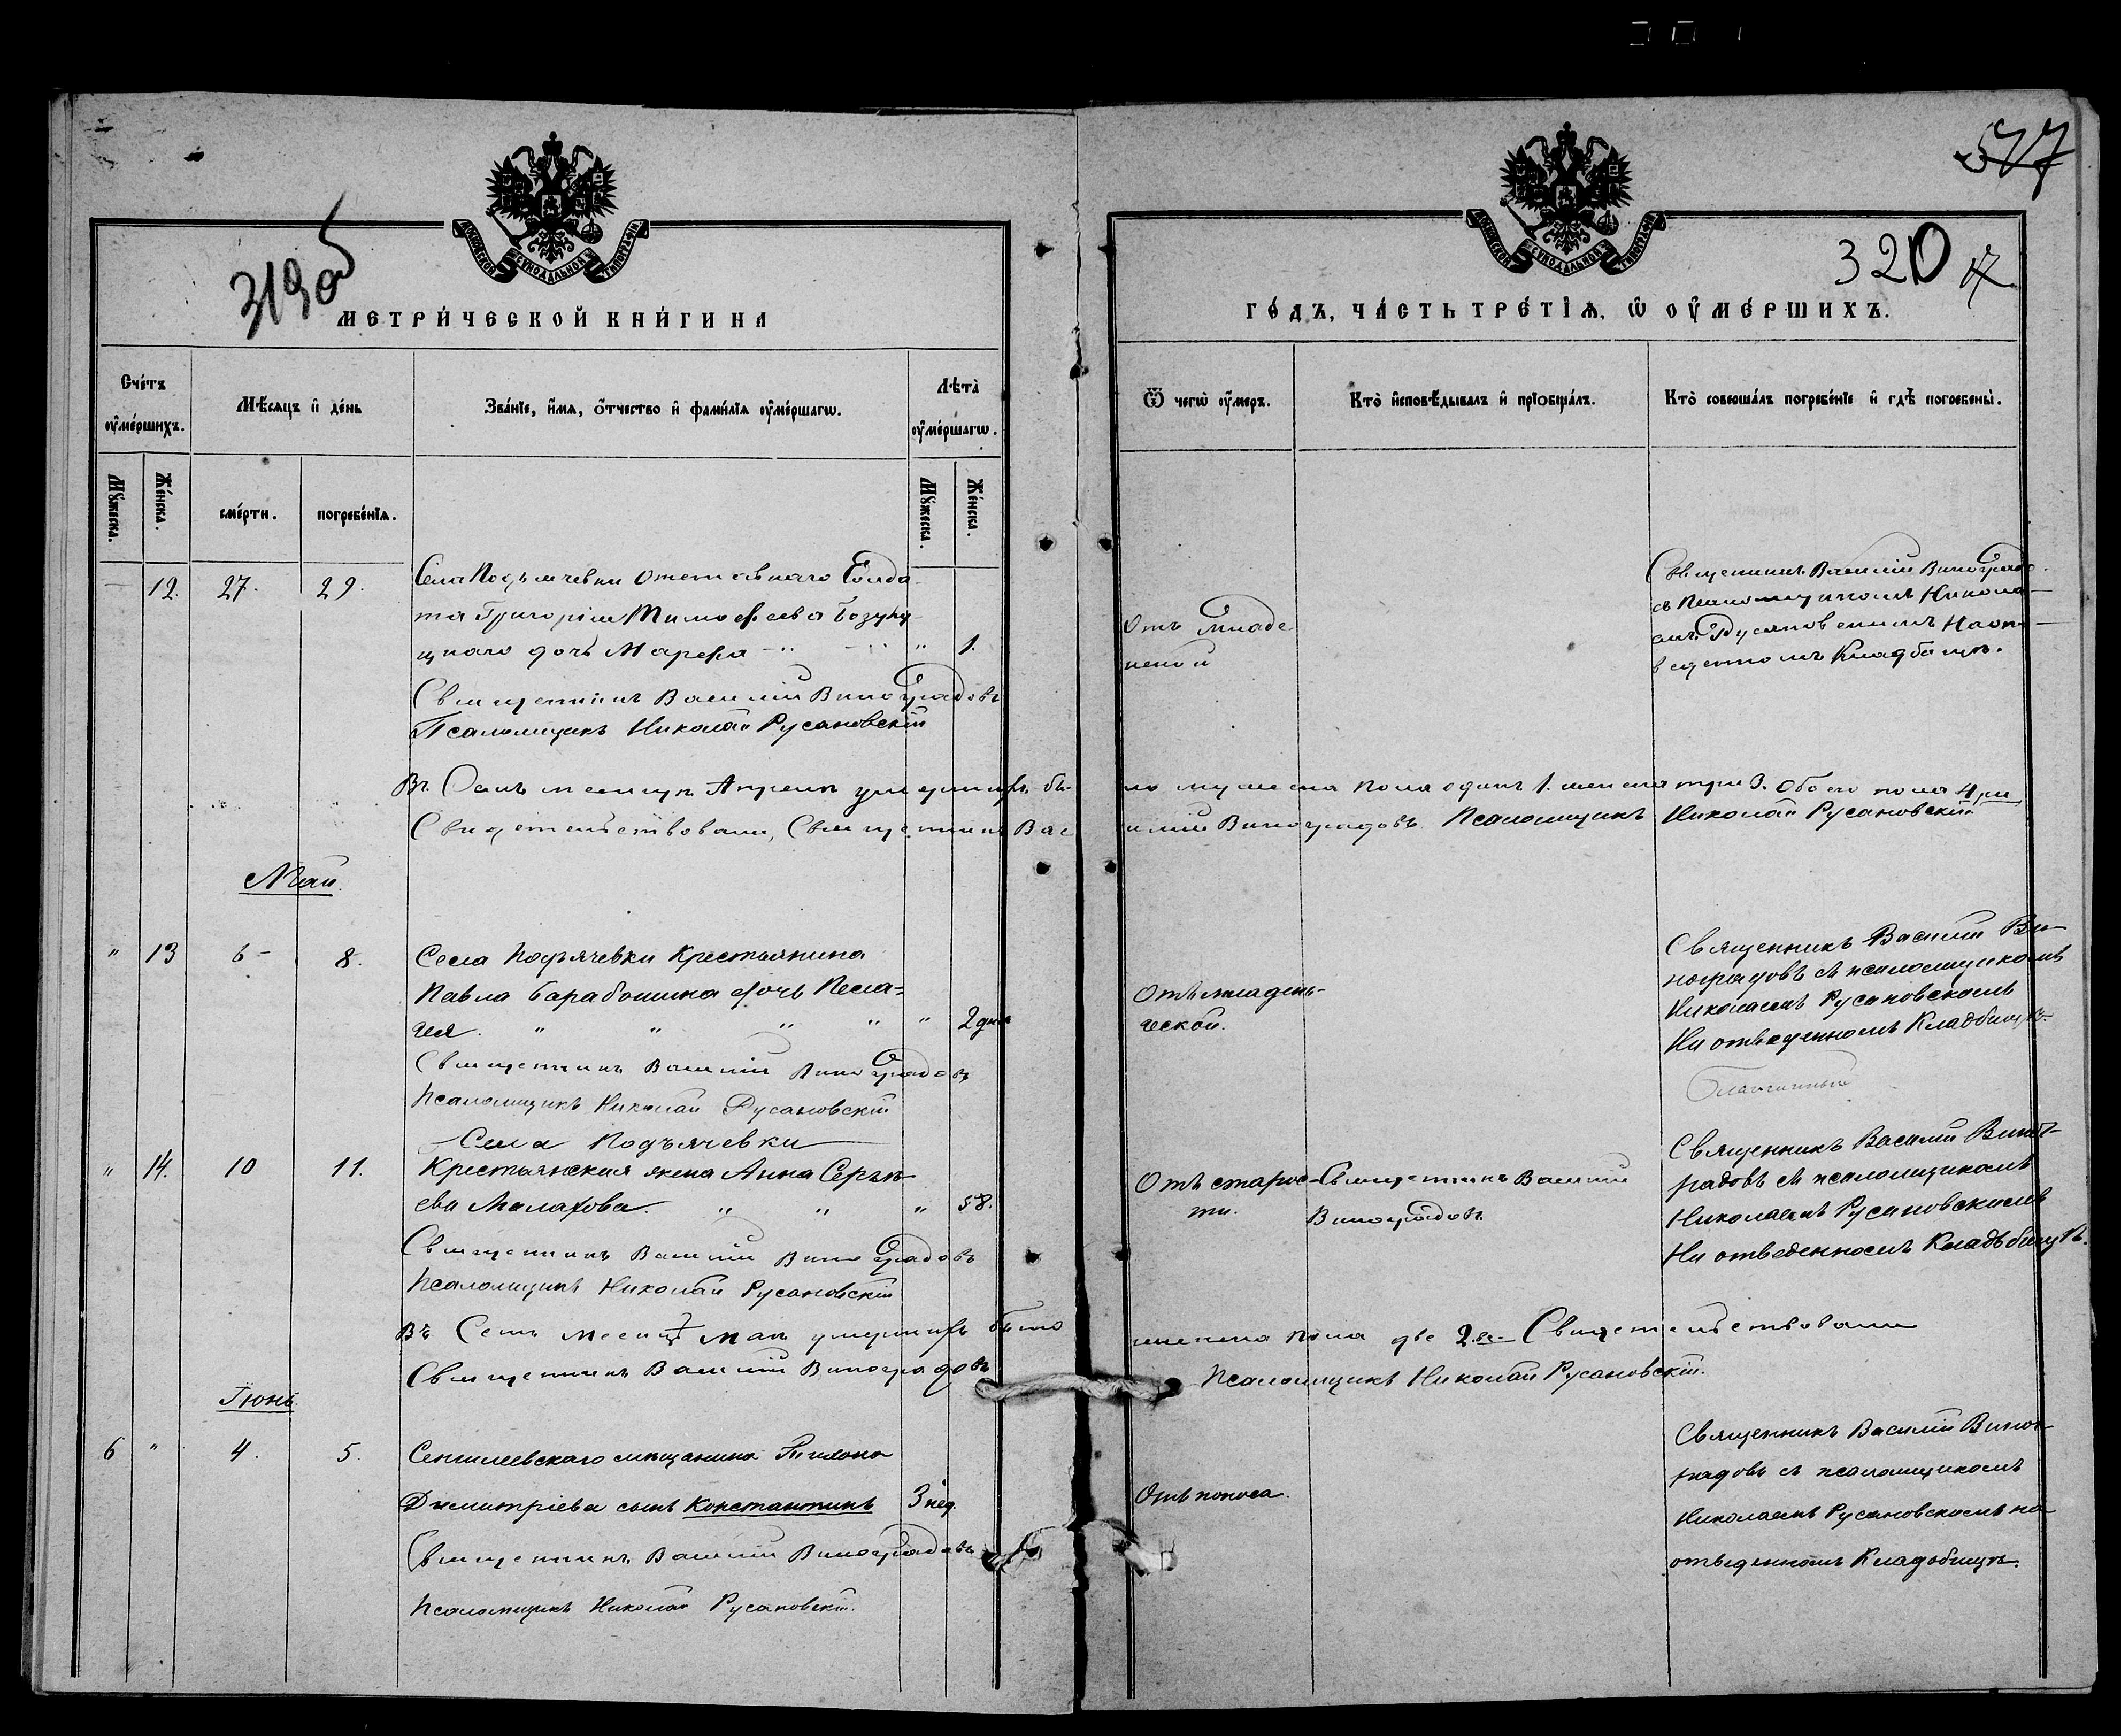 577
319 об
320
МОСКОВСКОЙ СѴНОДАЛЬНОЙ ТИПОГРАФІИ
МОСКОВСКОЙ СѴНОДАЛЬНОЙ ТИПОГРАФІИ
МЕТРИ́ЧЕСКОЙ КНИ́ГИ НА
ГО́ДЪ, ЧА́СТЬ ТРЕ́ТІѦ, Ѡ ОУ҆МЕ́РШИХЪ.
Сче́тъ оу҆ме́ршихъ.
Мѣ́сяцъ и҆ де́нь
Зва́нїе, и҆́мя, ѻ҆́тчество и҆ фами́лїя оу҆ме́ршагѡ.
Лѣ́та оу҆ме́ршагѡ.
Ѿ чегѡ̀ оу҆́меръ.
Кто̀ и҆сповѣ́дывалъ и҆ прїѡбща́лъ.
Кто̀ соверша́лъ погребе́нїе и҆ гдѣ̀ погребены̀.
Мꙋ́жеска.
Же́нска.
сме́рти.
погребе́нїѧ.
Мꙋ́жеска.
Же́нска.
12. 27. 29. Села Подъячевки Отставнаго Солда-
та Григорія Тимофеева
дочь Марѳа " 1.
Священникъ Василій Виноградовъ
Псаломщикъ Николай Русановскій
Отъ младе
ческой
Священникъ Василій Виноградо
съ Псаломщикомъ Никола-
емъ Русановскимъ На от-
веденномъ Кладбищѣ.
Въ Семъ месяцѣ Апрелѣ умершихъ бы-
ло мужеска пола одинъ 1. женска три 3. Обоего пола 4ре
Свидетельствовали, Священникъ Вас
илій Виноградовъ Псаломщикъ Николай Русановскій
Май.
" 13 6 - 8. Села Подъячевки Крестьянина
Павла Барабошина дочь Пела-
гея. " " " " " 2 дня
Священникъ Василій Виноградовъ
Псаломщикъ Николай Русановскій
Отъ младен-
ческой.
Священникъ Василій Ви-
ноградовъ съ псаломщикомъ
Николаемъ Русановскимъ
На отведенномъ Кладбищѣ.
Благочинный
Села Подъячевки
" 14. 10 11. Крестьянская жена Анна Сергѣ-
ева Малахова. " " " 58.
Священникъ Василій Виноградовъ
Псаломщикъ Николай Русановскій
Отъ старос-
ти.
Священникъ Василій
Виноградовъ.
Священникъ Василій Виног-
радовъ съ псаломщикомъ
Николаемъ Русановскимъ
На отведенномъ Кладбищѣ.
Въ Семъ месяцѣ Маѣ умершихъ было
женска пола две 2ве Свидетельствовали
Священникъ Василій Виноградовъ
Псаломщикъ Николай Русановскій.
Іюнь.
6 " 4. 5. Сенгилеевскаго мѣщанина
Димитріева сынъ Константинъ 3 нед.
Священникъ Василій Виноградовъ
Псаломщикъ Николай Русановскій.
Отъ поноса.
Священникъ Василій Виног-
радовъ съ псаломщикомъ
Николаемъ Русановскимъ на
отведенномъ Кладбищѣ.